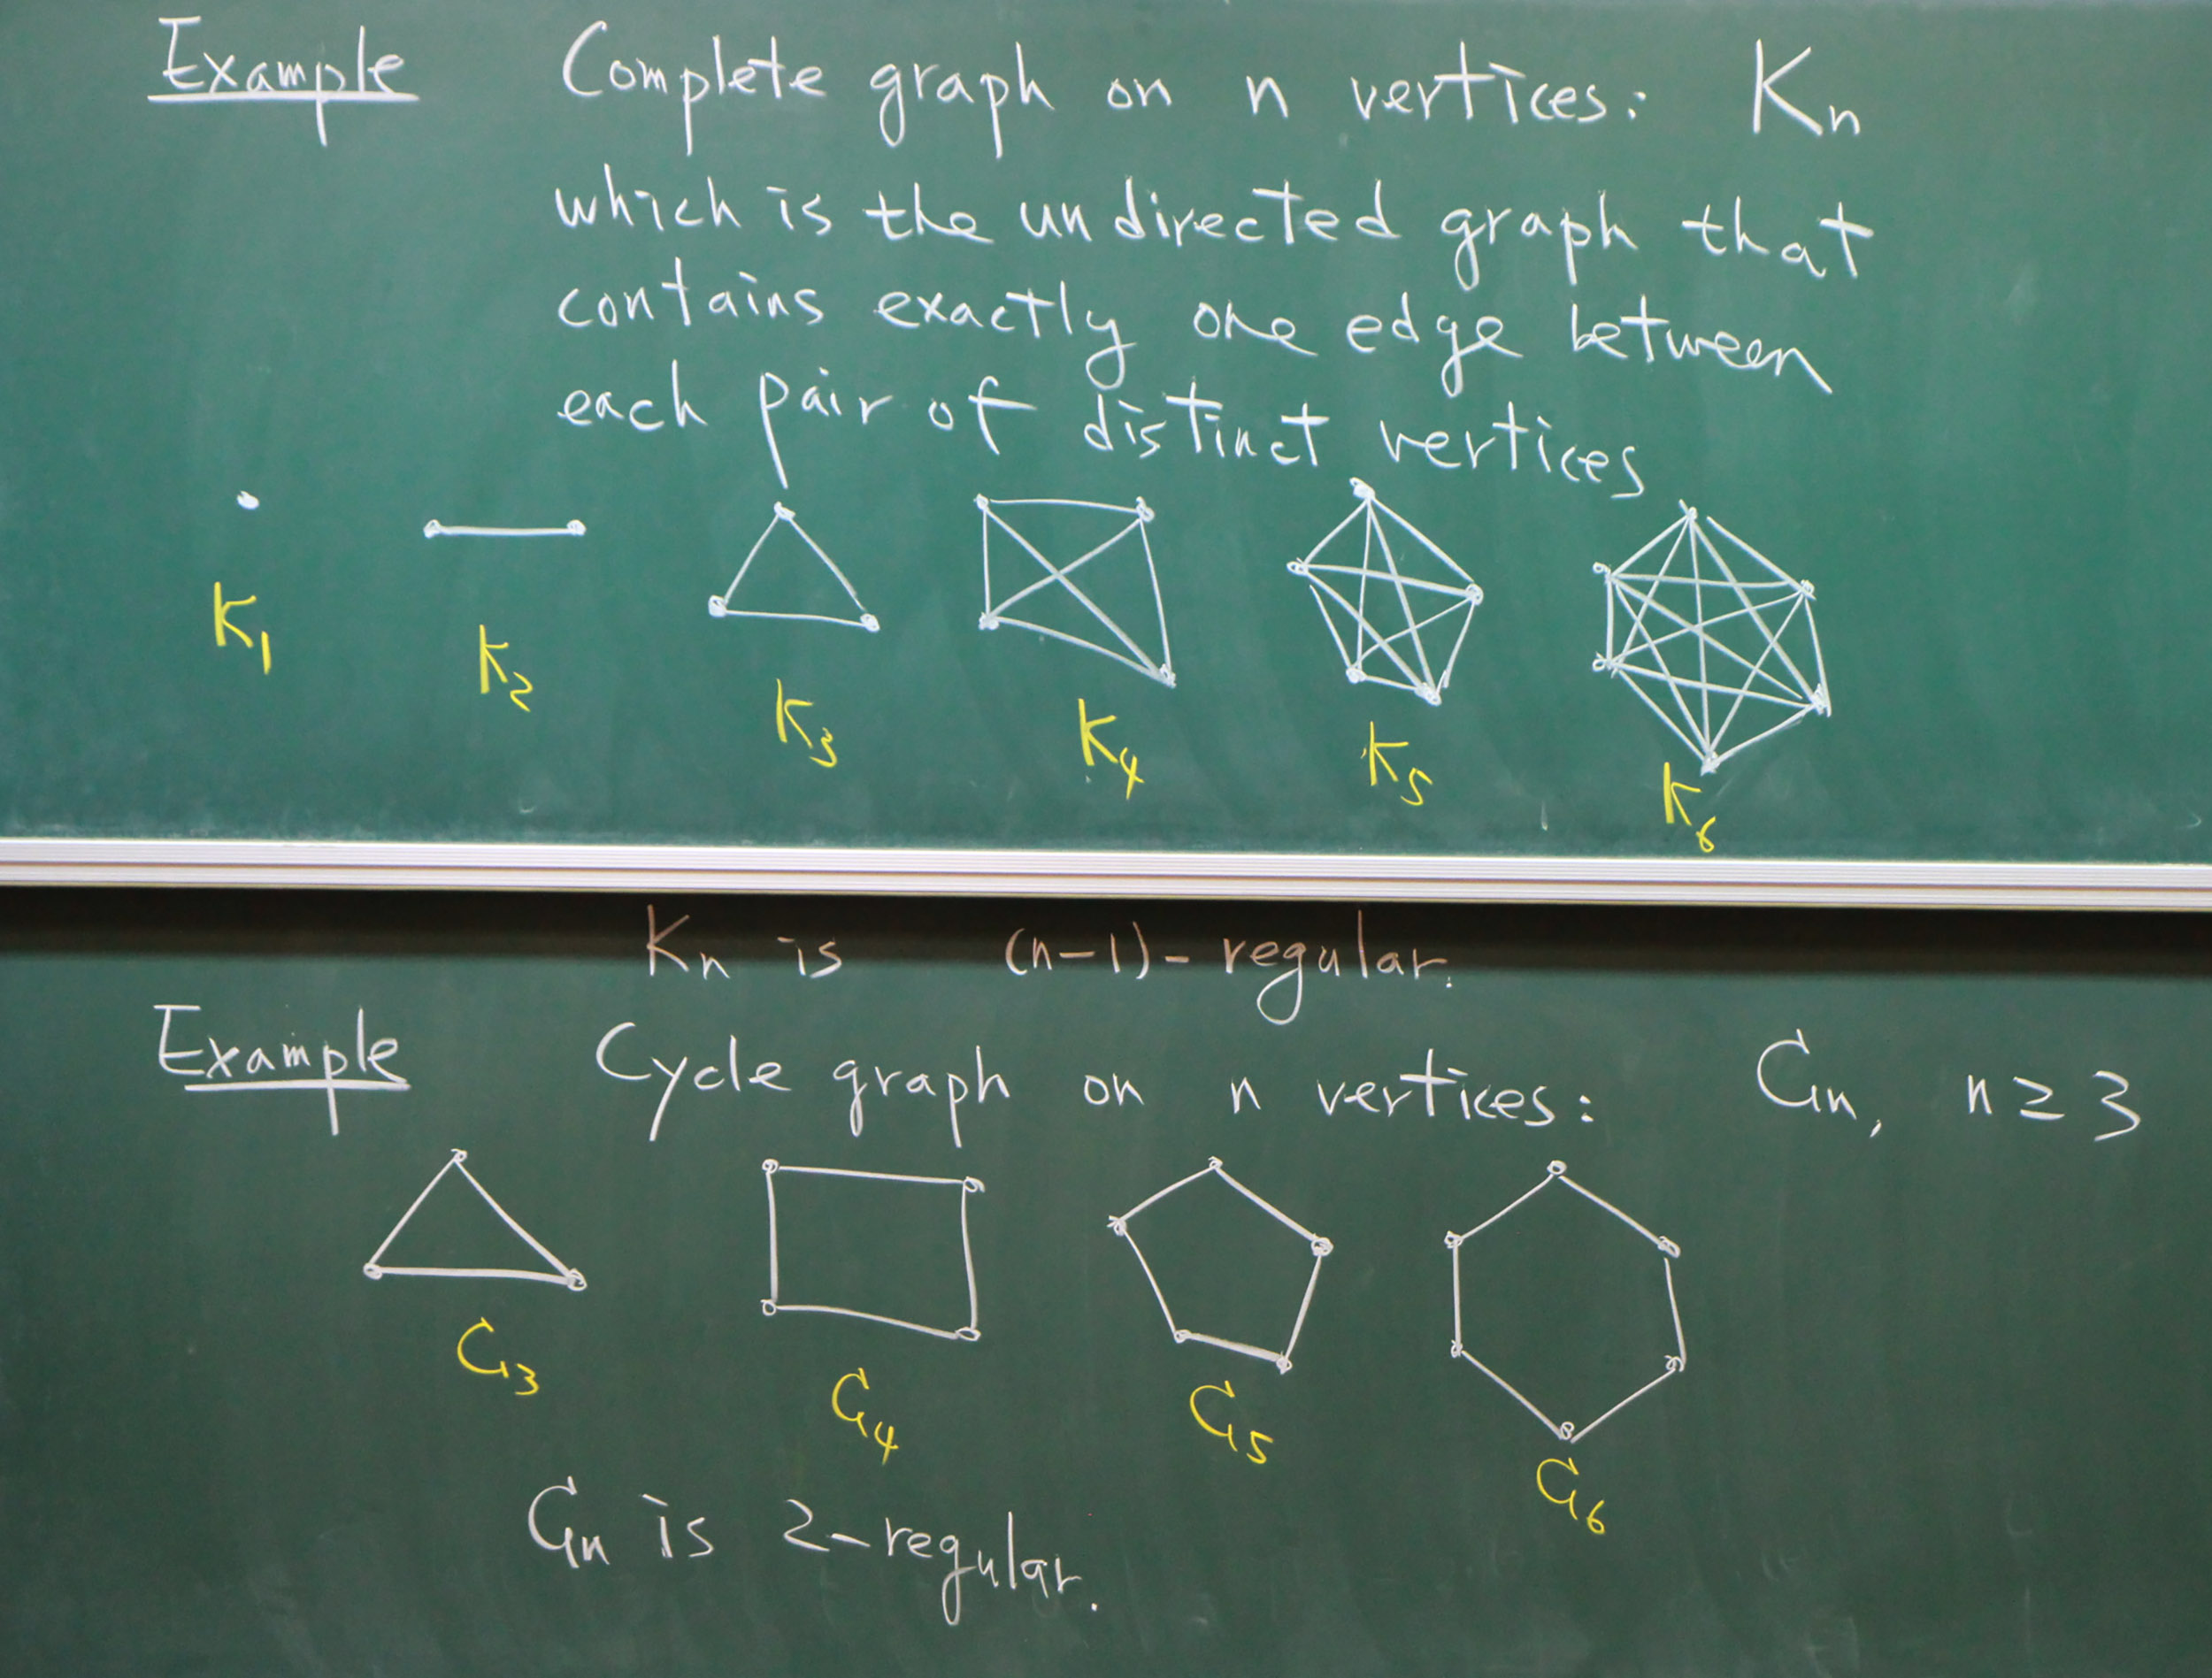 Example Complete graph on n vertices: Kn
which is the undirected graph that
contains exactly one edge between
each pair of distinct vertices
K1 K2 K3 K4 K5 K6
Kn is (n-1)-regular.
Example Cycle graph on n vertices: Cn, n ≥ 3
C3 C4 C5 C6
Cn is 2-regular.